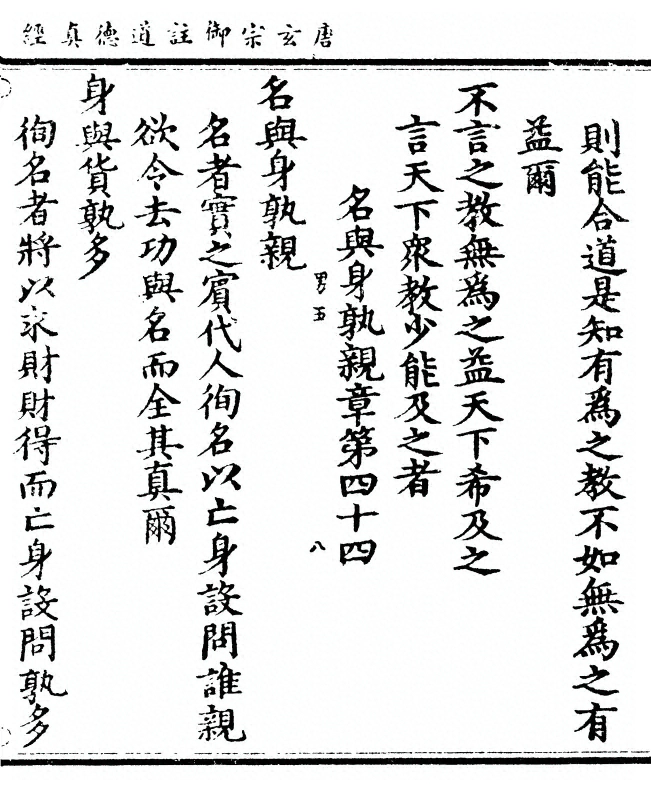 唐玄宗御註道德真經
則能合道是知有為之教不如無為之有
益爾
不言之教無為之益天下希及之
言天下眾教少能及之者
名與身孰親章第四十四
男五
八
名與身孰親
名者實之賓代人徇名以亡身設問誰親
欲令去功與名而全其真爾
身與貨孰多
徇名者將以求財財得而亡身設問孰多